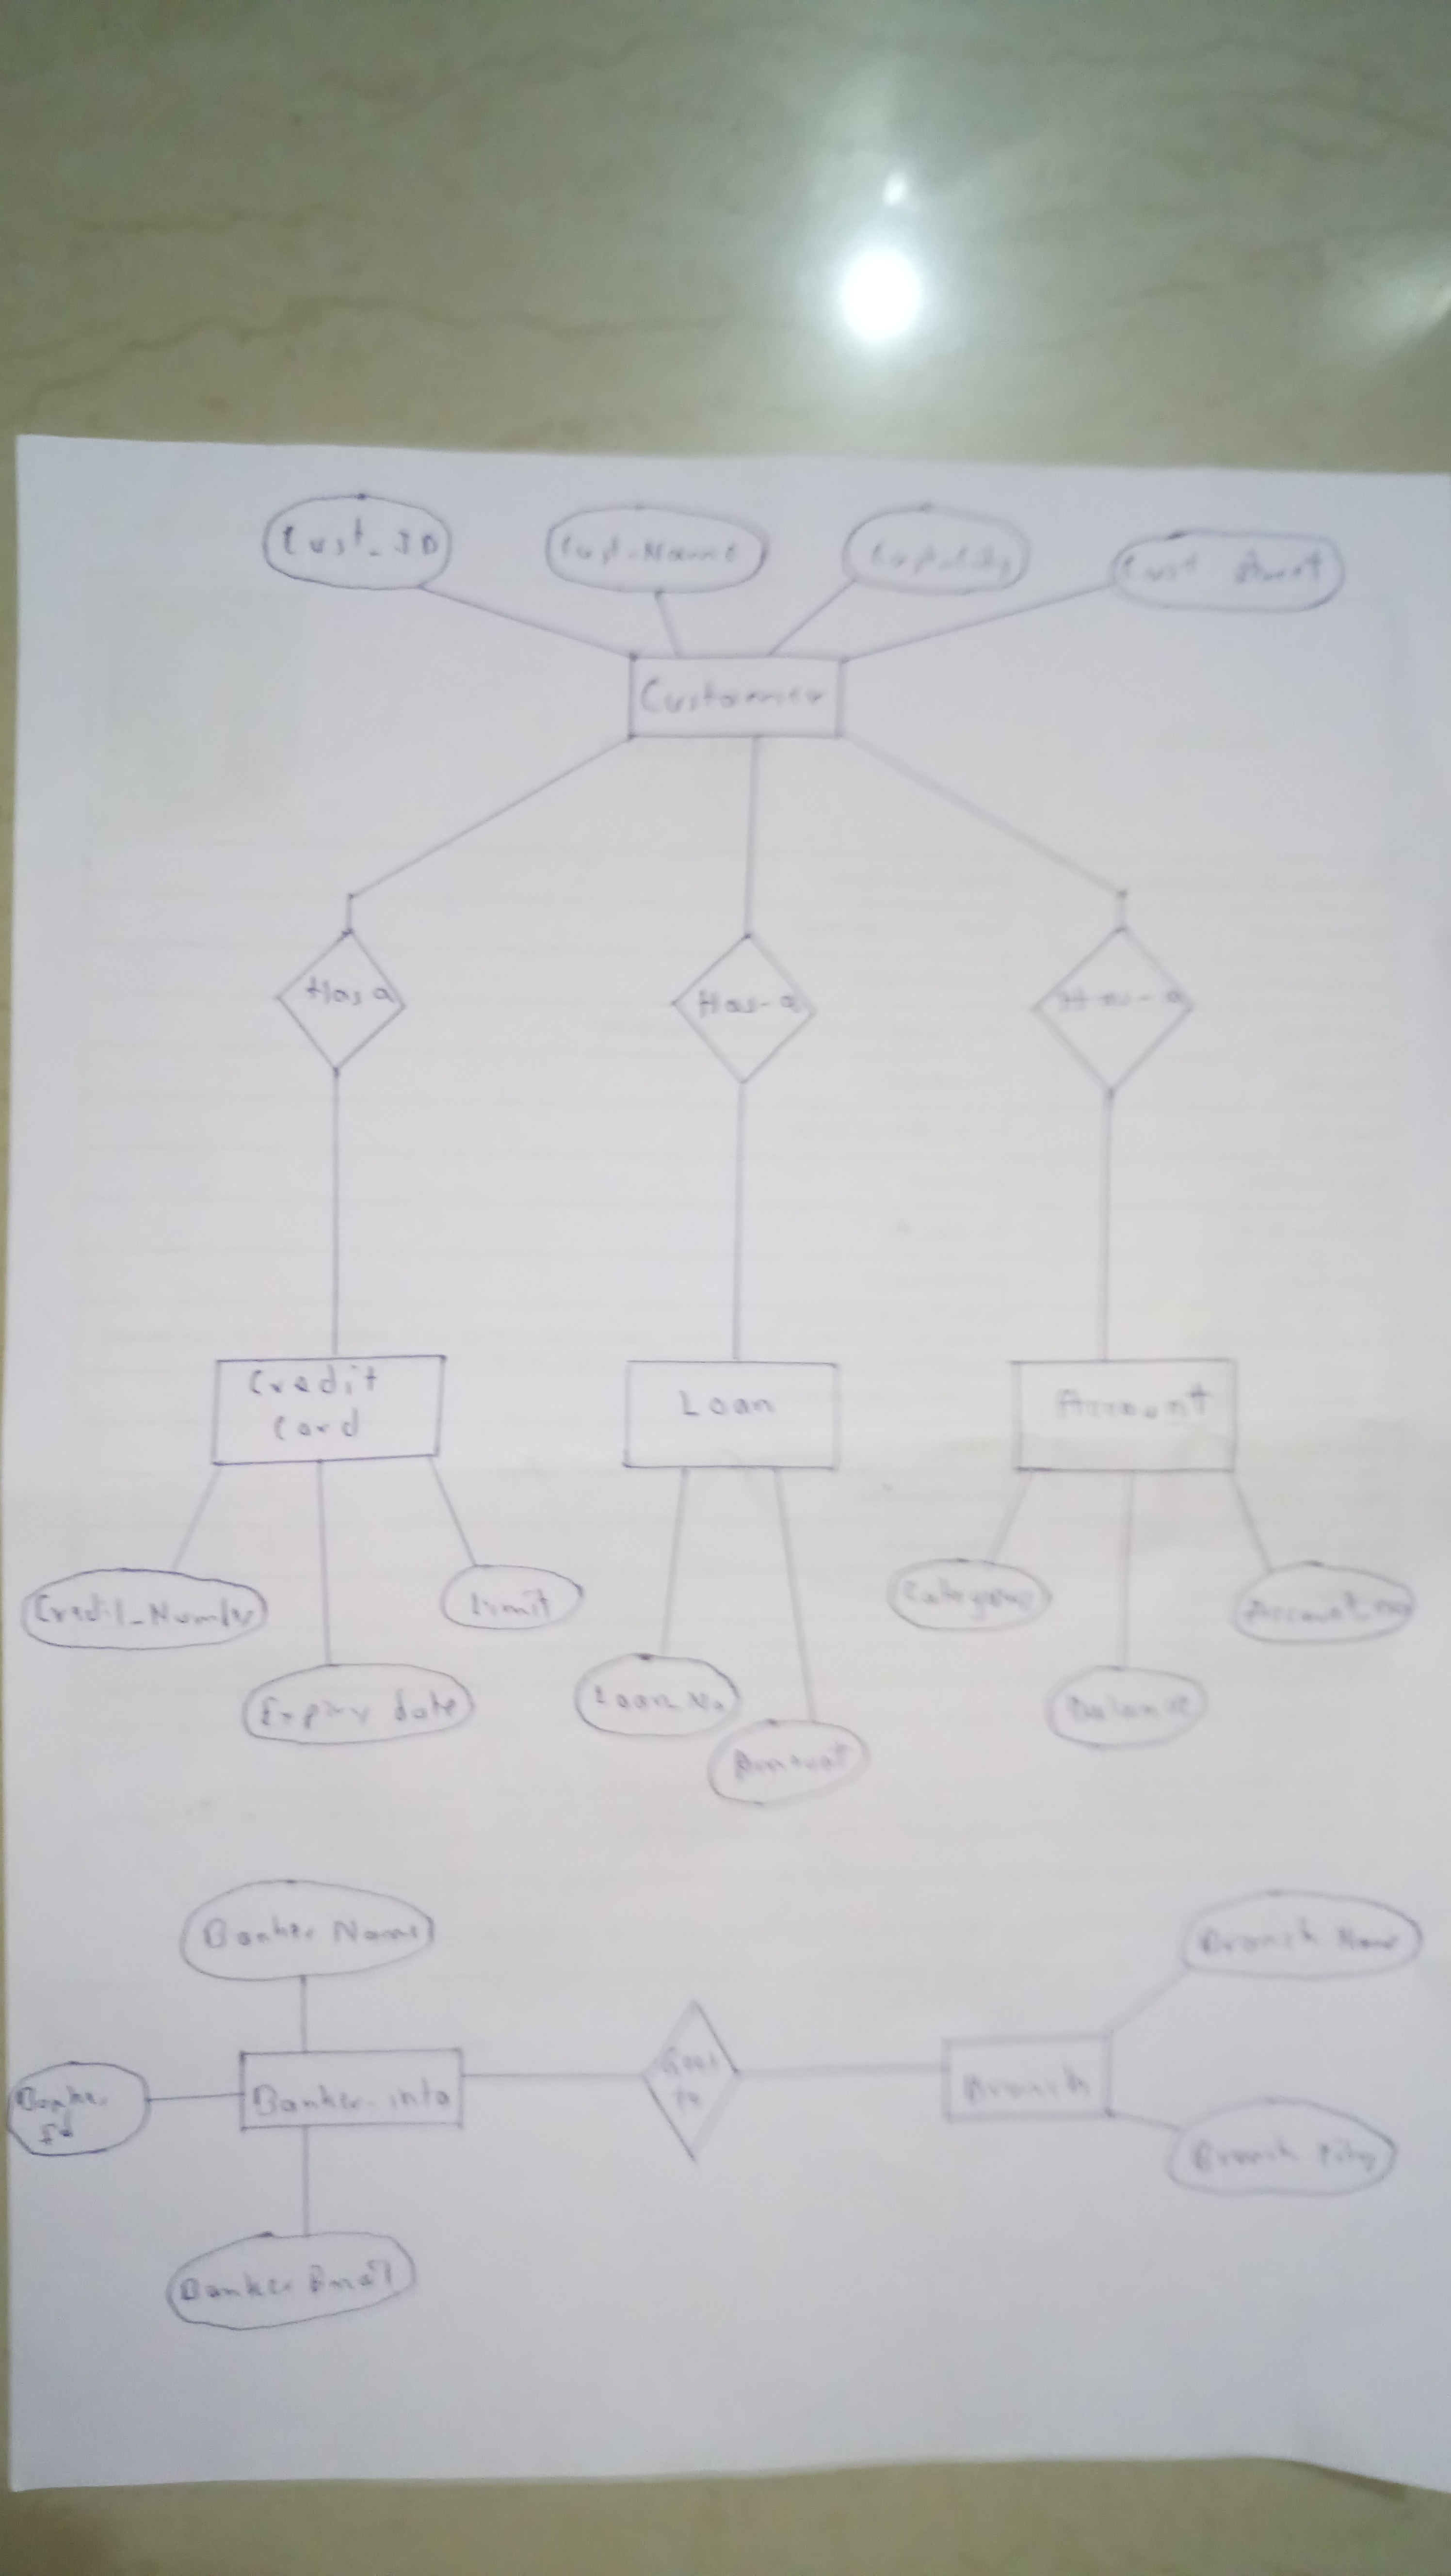 Cust_ID
Cust-Name
Cust
Customer
Has a
Has-a
Has-a
Credit
Card
Loan
Account
Credit_Number
Limit
Expiry date
Loan No
Amount
Category
Account no
Balance
Banker Name
Branch Name
Banker
Id
Banker-info
to
Branch
Branch City
Banker Email